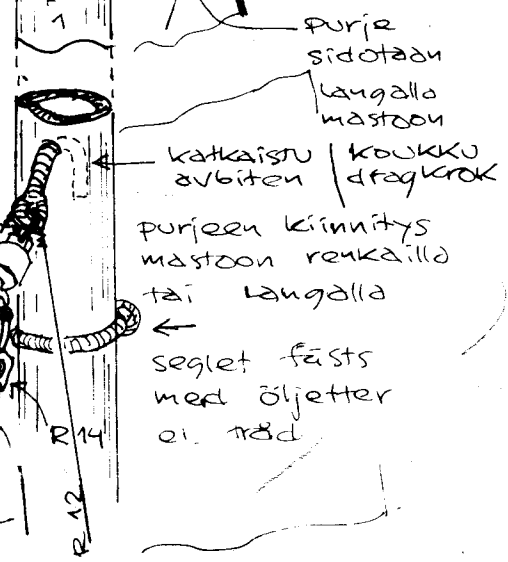 purje
sidotaan
langalla
mastoon
katkaistu / koukku
avbiten / dragkrok
purjeen kiinnitys
mastoon renkailla
tai langalla
seglet fästs
med öljetter
ei. tråd
R 14
R 12